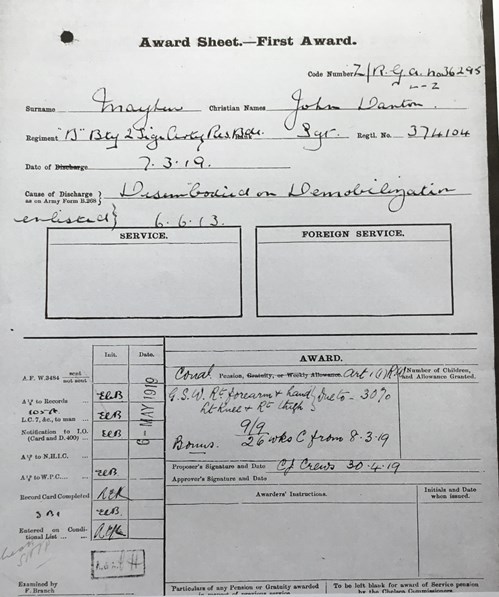 Award Sheet.—First Award.
Code Number Z/R.G.A. No 36295
Surname Mayhew Christian Names John Danton.
Regiment "B" Bty 2 Siege Arty Res Bde Sgt. Regtl. No. 374104
Date of Discharge 7.3.19.
Cause of Discharge as on Army Form B.268 } Disembodied on Demobilization
enlisted } 6.6.13.
SERVICE.
FOREIGN SERVICE.
Init. Date.
A.F. W.3484 sent not sent
A/F to Records
L.C. 7, &c., to man ...
Notification to I.O. (Card and D. 400) ...
A/F to N.H.I.C. ...
A/F to W.P.C. ...
Record Card Completed
3 B1
Entered on Conditional List ...
Examined by F. Branch
6-MAY 1919
AWARD.
Condl Pension, Gratuity, or Weekly Allowance. Art 1(1) R.W.
Number of Children, and Allowance Granted.
G.S.W. Rt forearm & hand
Lt Knee & Rt thigh } Due to – 30%
9/9
Bonus. 26 wks C from 8-3-19
Proposer's Signature and Date CJ Crews 30.4.19
Approver's Signature and Date
Awarders' Instructions.
Initials and Date when issued.
Particulars of any Pension or Gratuity awarded in respect of previous service
To be left blank for award of Service pension by the Chelsea Commissioners.